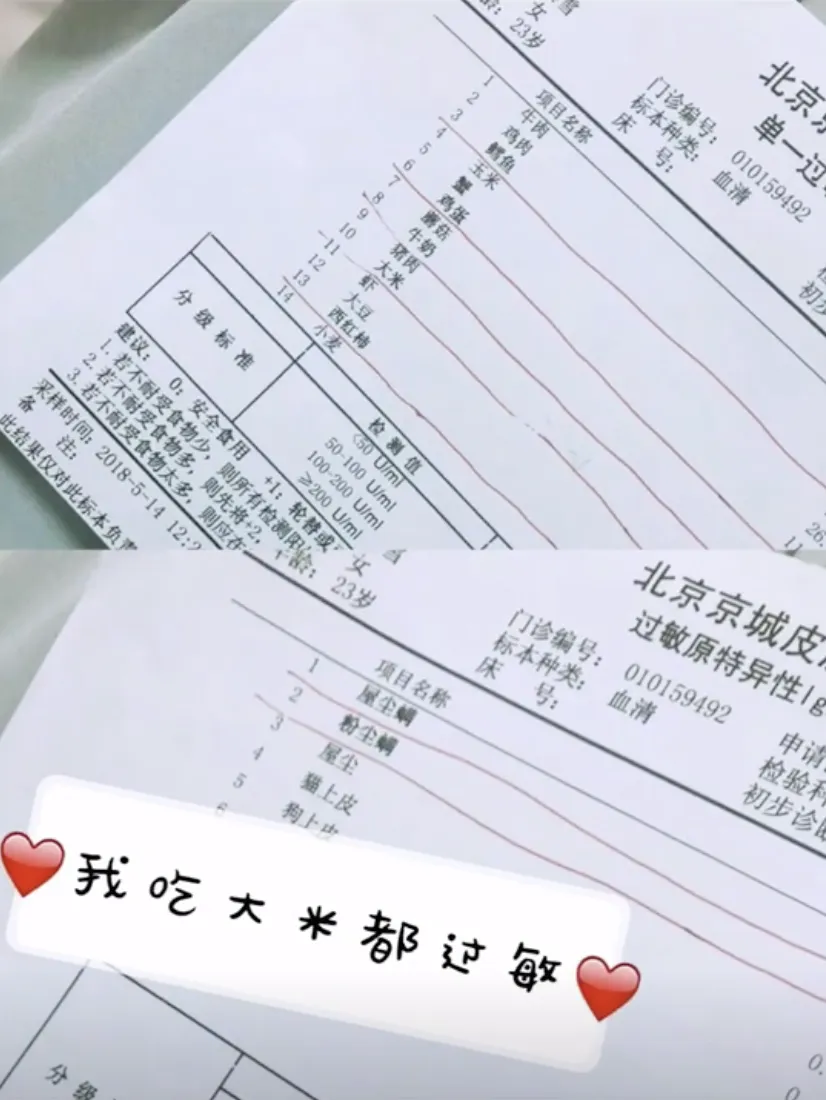 雪
女
龄：23岁
北京京
单一过
门诊编号：010159492
标本种类：血清
床　号：
初步
项目名称
1 牛肉
2 鸡肉
3 鳕鱼
4 玉米
5 蟹
6 鸡蛋
7 蘑菇
8 牛奶
9 猪肉
10 大米
11 虾
12 大豆
13 西红柿
14 小麦
26.
11
分级标准
检测值
<50 U/ml
50-100 U/ml
100-200 U/ml
≥200 U/ml
建议： 0：安全食用 +1：轮替或
1. 若不耐受食物少，则所有检测阳
2. 若不耐受食物多，则先将+2，
3. 若不耐受食物太多，则应在
采样时间：2018-5-14 12:2
备　注：
此结果仅对此标本负责
女
年龄：23岁
北京京城皮
过敏原特异性Ig
门诊编号：010159492
标本种类：血清
床　号：
申请
检验科
初步诊断
项目名称
1 屋尘螨
2 粉尘螨
3 屋尘
4 猫上皮
5 狗上皮
6
我吃大米都过敏
0.
0
分级